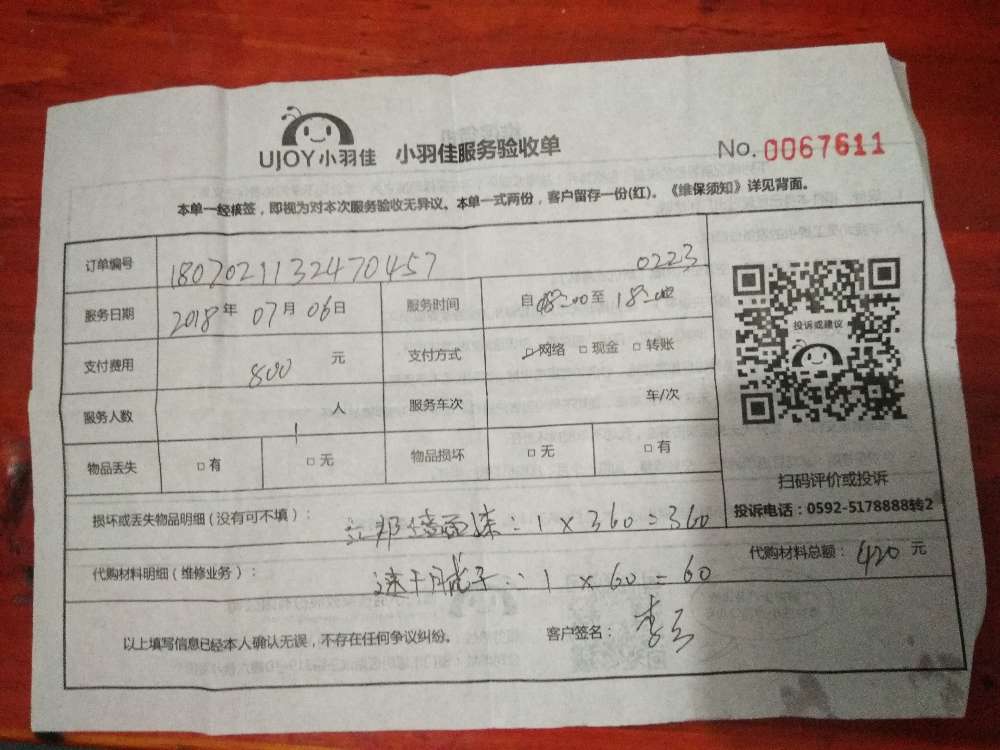 UJOY小羽佳 小羽佳服务验收单 No. 0067611
本单一经核签，即视为对本次服务验收无异议。本单一式两份，客户留存一份(红)。《维保须知》详见背面。
订单编号 1807021132470457 0223
服务日期 2018年07月06日 服务时间 自 08:00至 18:00
支付费用 800 元 支付方式 ☑网络 □现金 □转账
服务人数 1 人 服务车次 车/次
物品丢失 □有 □无 物品损坏 □无 □有
投诉或建议
扫码评价或投诉
投诉电话：0592-5178888转2
损坏或丢失物品明细(没有可不填)： 立邦墙面漆：1×360=360
代购材料明细(维修业务)： 速干腻子：1×60=60
代购材料总额： 420 元
以上填写信息已经本人确认无误，不存在任何争议纠纷。 客户签名：